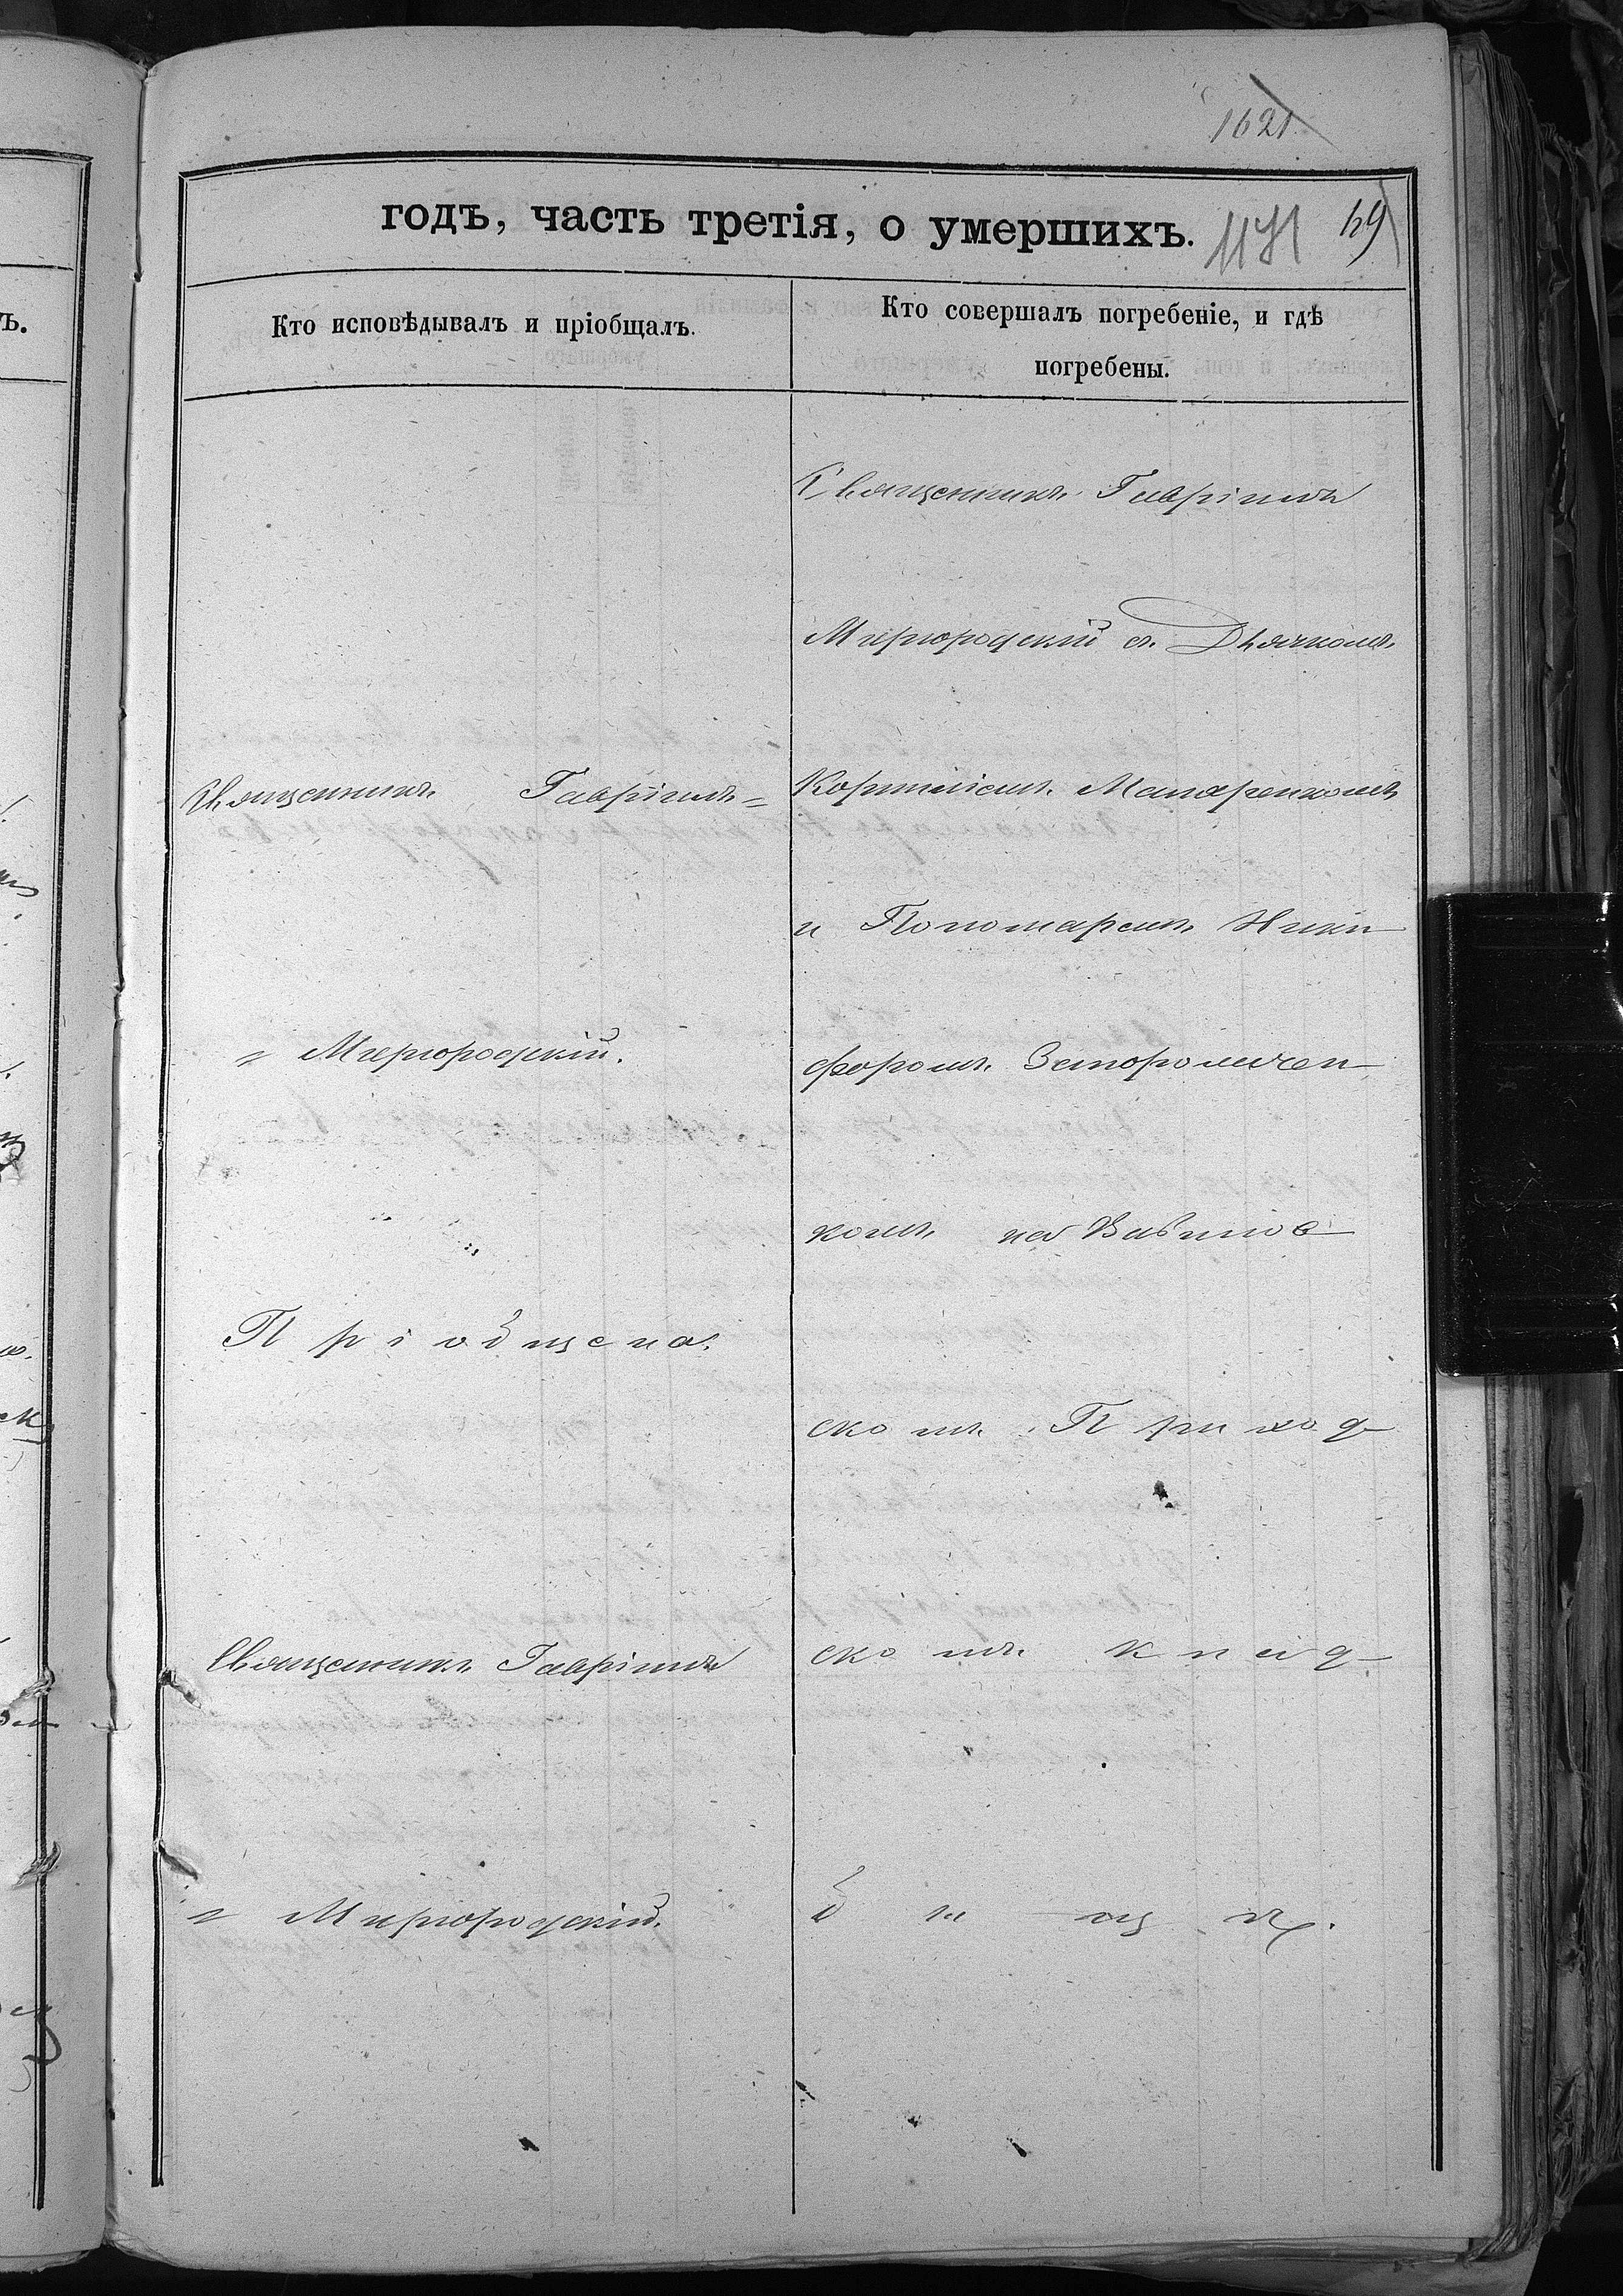 1621
годъ, часть третія, о умершихъ.
69
Кто исповѣдывалъ и пріобщалъ.
Кто совершалъ погребеніе, и гдѣ
погребены.
Священникъ Гавріилъ
Миргородскій съ Дьячкомъ
Корниліемъ Макаренкомъ
и Пономаремъ Ники-
форомъ
комъ на
скомъ Приход-
скомъ клад-
бищѣ.
Священникъ Гавріилъ =
= Миргородскій.
Пріобщена.
Священникъ Гавріилъ
= Миргородскій.